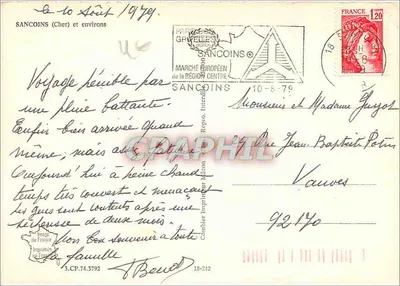 Le 10 Août 1979.
SANCOINS (Cher) et environs
SANCOINS
MARCHE EUROPÉEN
de la RÉGION CENTRE
SANCOINS
10-8-79
18
FRANCE
1,20
Voyage pénible par
une pluie battante.
Enfin bien arrivée quand
même, mais assez fatiguée
Aujourd'hui à peine chaud
temps très couvert et menaçant
les gens sont contents après une
sécheresse de deux mois.
Mon bon souvenir à toute
la famille
Combier Imprimeur Mâcon
Monsieur et Madame Guyot
Rue Jean Baptiste Potin
Vanves
92170
Image
de France
3.CP.74.3792
18-242
DELCAMPE